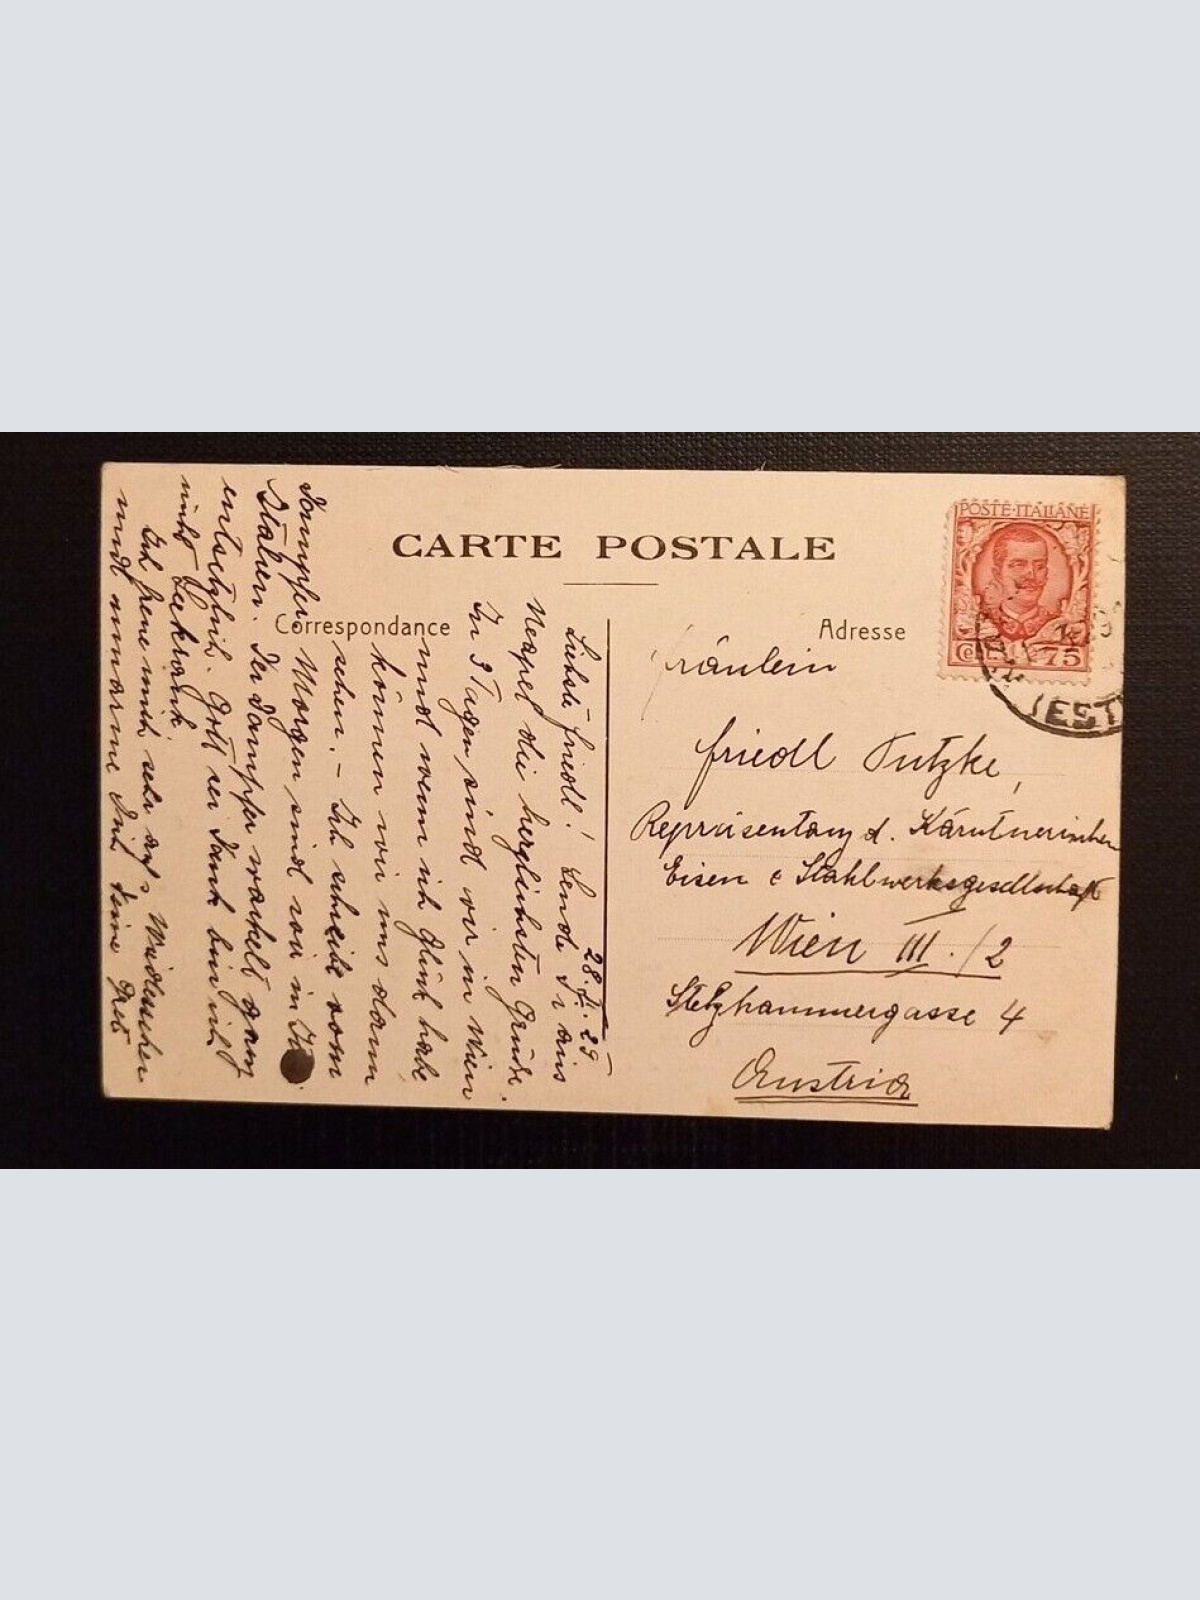 CARTE POSTALE
Correspondance
Adresse
POSTE·ITALIANE
Cent. 75
IEST
28. 29
Liebste Friedl! Sende Dir aus
Neapel die herzlichsten Grüße.
In 3 Tagen sind wir in Wien
und wenn ich Glück habe
können wir uns dann
sehen. – Ich schreibe vom
Dampfer. Morgen sind wir in
Italien. Der Dampfer wackelt ganz
entsetzlich. Gott sei Dank bin ich
nicht Seekrank.
Ich freue mich sehr auf's Wiedersehen
und umarme Dich Deine Gret
Fräulein
Friedl Putzke,
Repräsentanz d. Kärntnerischen
Eisen & Stahlwerksgesellschaft
Wien III./2
Stelzhammergasse 4
Austria